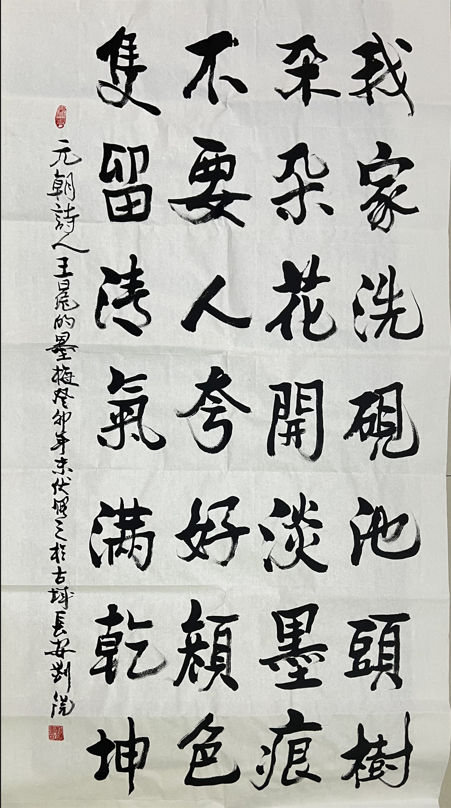 我家洗硯池頭樹
朵朵花開淡墨痕
不要人夸好顏色
隻留清氣满乾坤
元朝詩人王冕的墨梅癸卯年末伏 之於古城長安